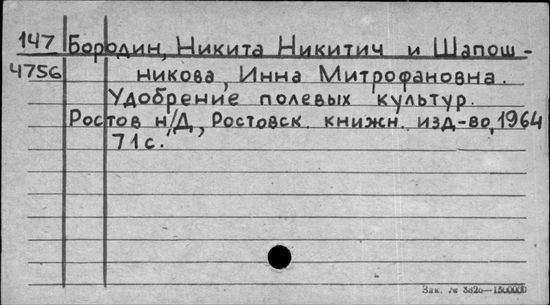 147 Бородин, Никита Никитич и Шапош-
4756 никова, Инна Митрофановна.
Удобрение полевых культур.
Ростов н/Д, Ростовск. книжн. изд-во, 1964
71с.
Зак. №